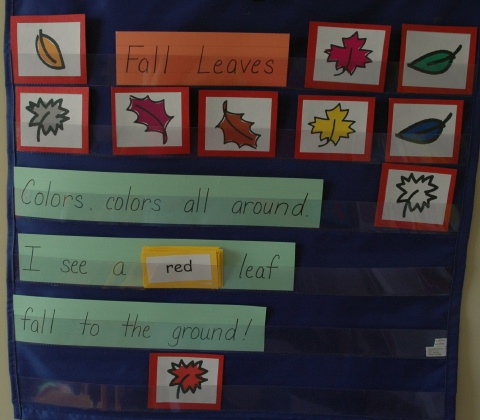 Fall Leaves
Colors, colors all around.
I see a red leaf
fall to the ground!